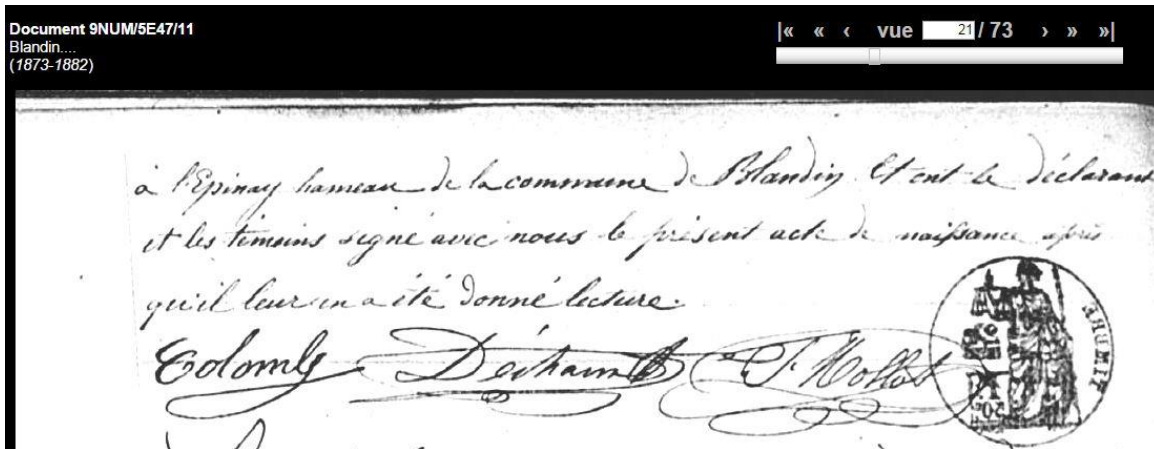 Document 9NUM/5E47/11
Blandin....
(1873-1882)
|« « ‹ vue 21 / 73 › » »|
à l'Epinay hameau de la commune de Blandin Et ont le déclarant
et les témoins signé avec nous le présent acte de naissance après
qu'il leur en a été donné lecture.
Colomb